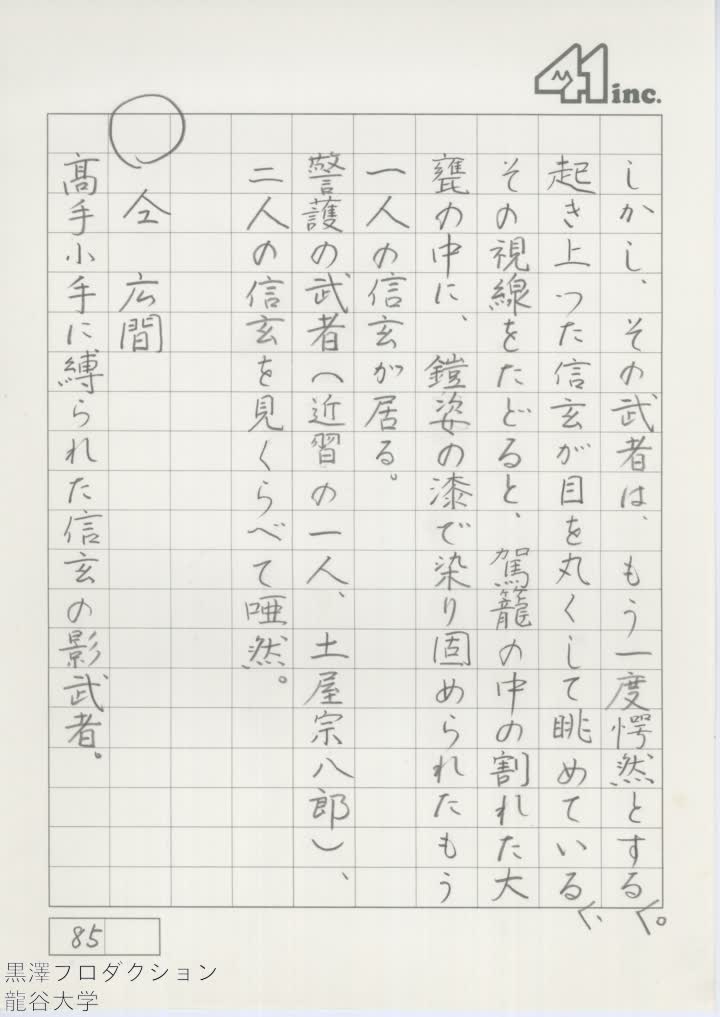 41 inc.
しかし、その武者は、もう一度愕然とする。
起き上った信玄が目を丸くして眺めている、
その視線をたどると、駕籠の中の割れた大
甕の中に、鎧姿の漆で染り固められたもう
一人の信玄が居る。
警護の武者(近習の一人、土屋宗八郎)、
二人の信玄を見くらべて唖然。
仝 広間
高手小手に縛られた信玄の影武者。
85
黒澤プロダクション
龍谷大学